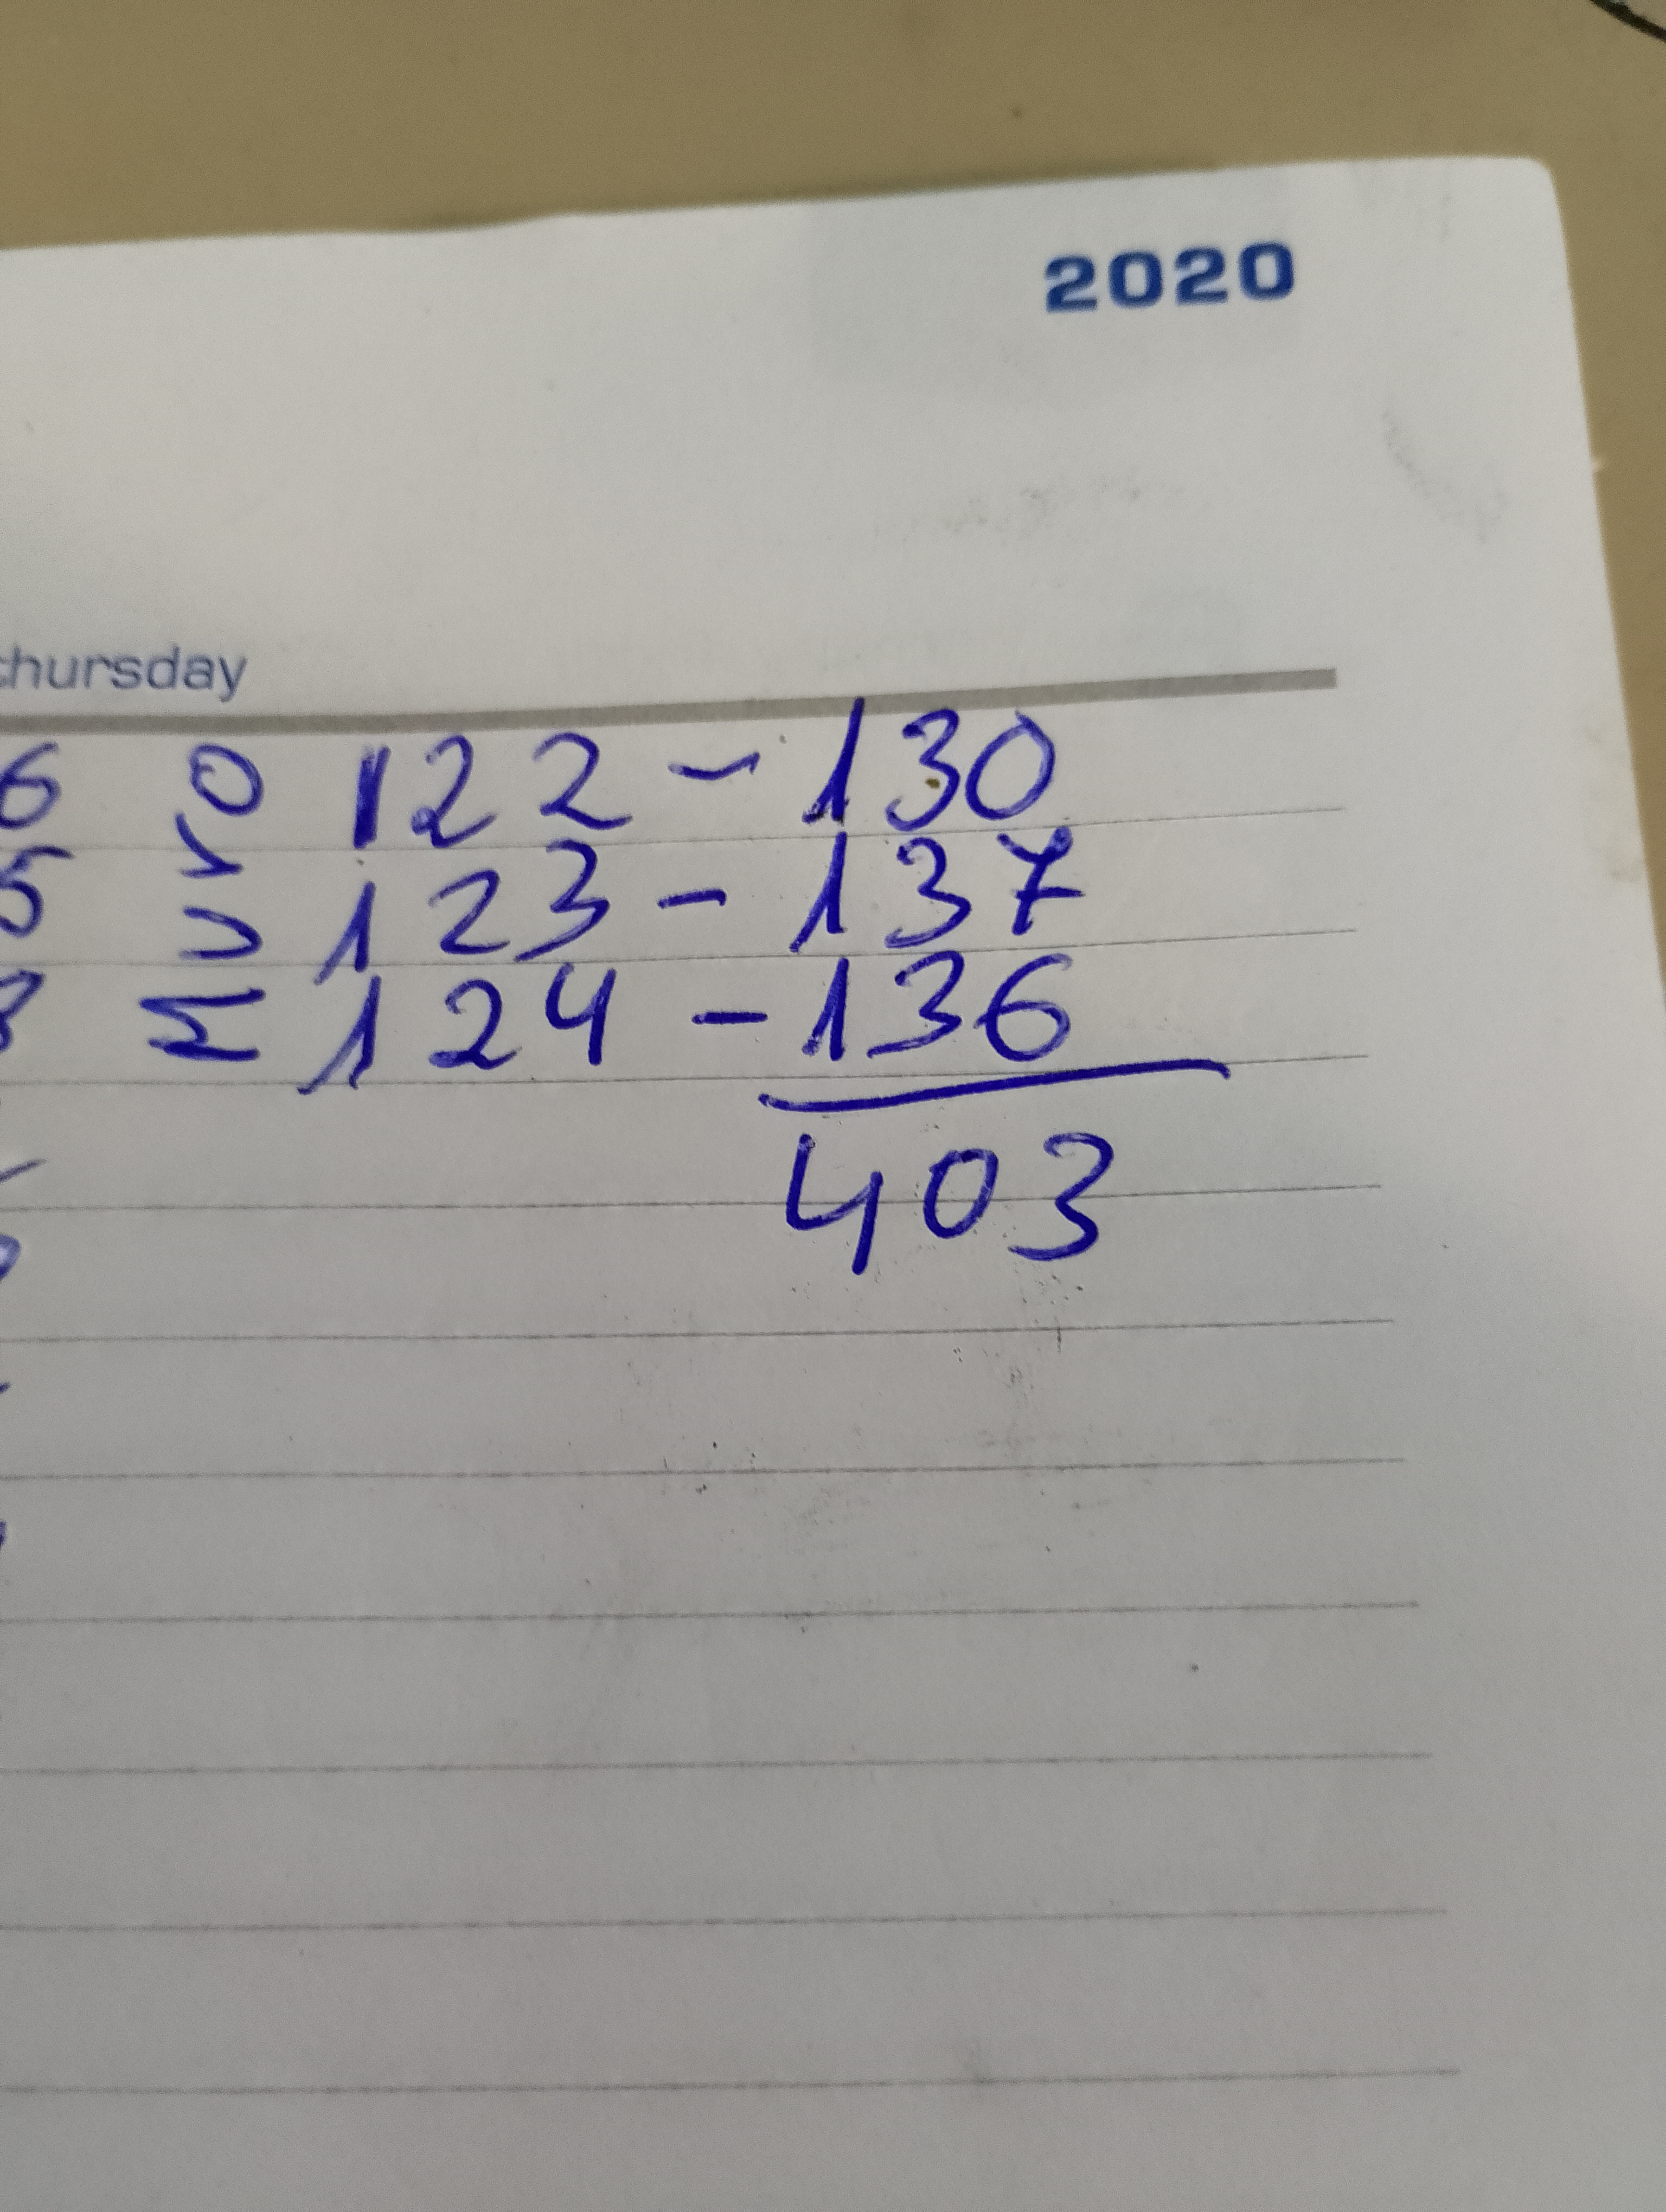 2020
thursday
6 0 122 - 130
5 123 - 137
124 - 136
403